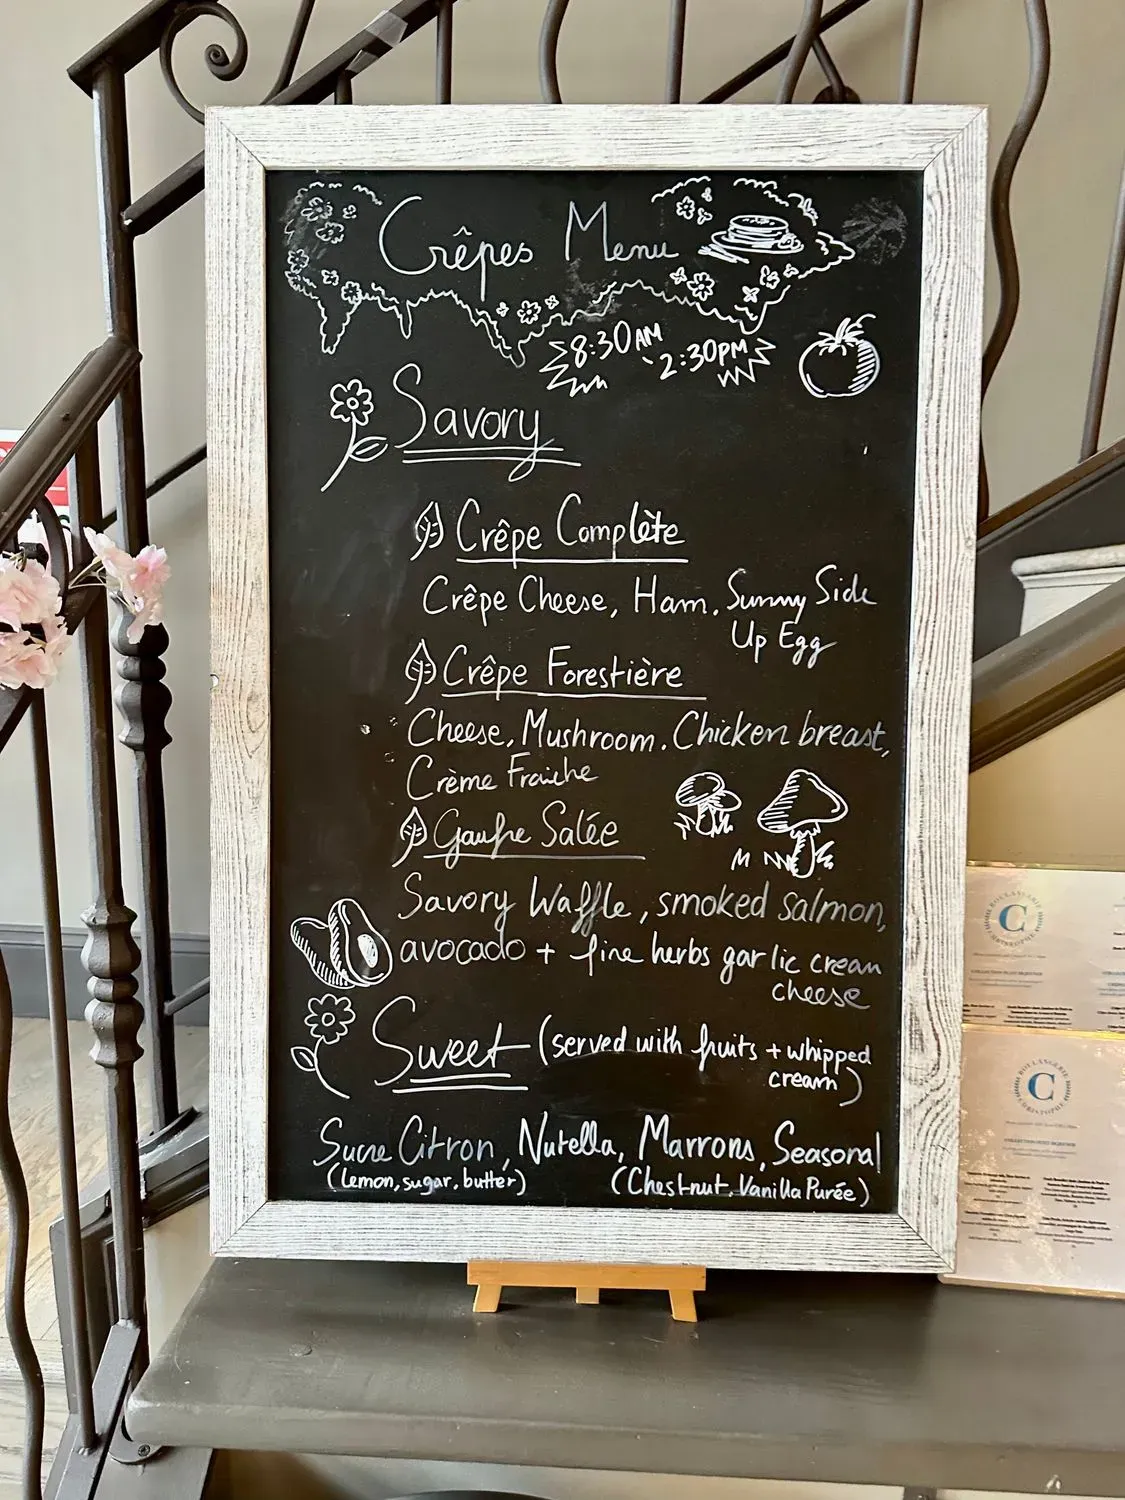 Crêpes Menu
8:30AM
- 2:30PM
Savory
Crêpe Complète
Crêpe Cheese, Ham, Sunny Side
Up Egg
Crêpe Forestière
Cheese, Mushroom, Chicken breast,
Crème Fraîche
Gaufre Salée
Savory Waffle, smoked salmon,
avocado + fine herbs garlic cream
cheese
Sweet (served with fruits + whipped
cream)
Sucre Citron, Nutella, Marrons, Seasonal
(lemon, sugar, butter) (Chestnut, Vanilla Purée)
BOULANGERIE
C
CHRISTOPHE
BOULANGERIE
C
CHRISTOPHE